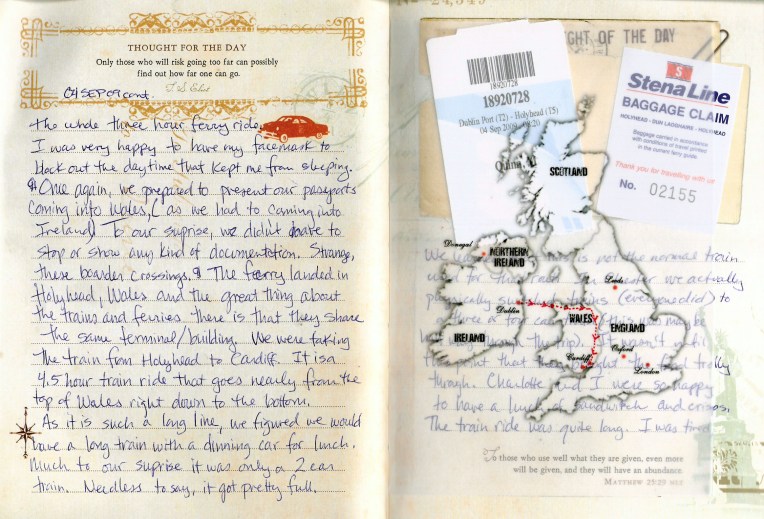 THOUGHT FOR THE DAY
Only those who will risk going too far can possibly
find out how far one can go.
T. S. Eliot
04 SEP 09 cont.
the whole three hour ferry ride.
I was very happy to have my facemask to
block out the daytime that kept me from sleeping.
¶ Once again, we prepared to present our passports
coming into Wales, (as we had to coming into
Ireland) To our suprise, we didn't have to
stop or show any kind of documentation. Strange,
these boarder crossings. ¶ The ferry landed in
Holyhead, Wales and the great thing about
the trains and ferries there is that they share
the same terminal/building. We were taking
the train from Holyhead to Cardiff. It is a
4.5 hour train ride that goes nearly from the
top of Wales right down to the bottom.
As it is such a long line, we figured we would
have a long train with a dinning car for lunch.
Much to our suprise it was only a 2 car
train. Needless to say, it got pretty full.
GHT OF THE DAY
18920728
18920728
Dublin Port (T2) - Holyhead (T5)
04 Sep 2009
S
StenaLine
BAGGAGE CLAIM
HOLYHEAD - DUN LAOGHAIRE - HOLYHEAD
Baggage carried in accordance
with conditions of travel printed
in the current ferry guide
Thank you for travelling with us
No. 02155
SCOTLAND
Donegal
NORTHERN
IRELAND
Leeds
Dublin
WALES
ENGLAND
IRELAND
Oxford
Cardiff
London
We
this is not the normal train
used for
we actually
to
the trip). It wasn't
the point that
the food trolly
through. Charlotte and I were so happy
to have a lunch of sandwitch and crisps.
The train ride was quite long. I was tired
To those who use well what they are given, even more
will be given, and they will have an abundance.
MATTHEW 25:29